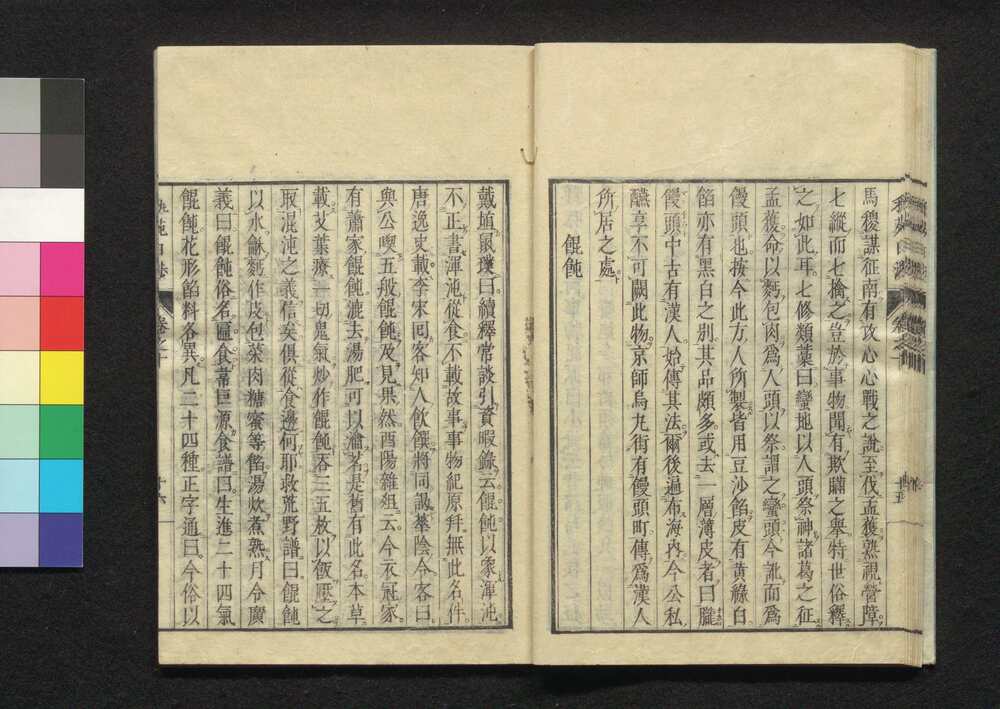 馬稷謀征南有攻心心戰之說至伐孟獲熟視營障
七縱而七擒之豈於事物聞有欺瞞之舉特世俗釋
之如此耳七修類藁曰蠻地以人頭祭神諸葛之征
孟獲命以麪包肉為人頭以祭謂之蠻頭今訛而為
饅頭也按今此方人所製者用豆沙餡皮有黃綠白
餡亦有黑白之別其品頗多或去一層薄皮者曰朧
饅頭中古有漢人始傳其法爾後遍布海內今公私
醼享不可闕此物京師烏丸街有饅頭町傳為漢人
所居之處
餛飩
戴埴鼠璞曰續釋常談引資暇錄云餛飩以象渾沌
不正書渾沌從食不載故事事物紀原并無此名件
唐逸史載李宋回客知人飲饌將同謁華陰令客曰
與公喫五般餛飩及見果然酉陽雜俎云今衣冠家
有蕭家餛飩漉去湯肥可以瀹茗是舊有此名本草
載艾葉療一切鬼氣炒作餛飩吞三五枚以飯壓之
取混沌之義信矣俱從食邊何耶救荒野譜曰餛飩
以水龢麪作皮包菜肉糖蜜等餡湯炊煮熟月令廣
義曰餛飩俗名匾食韋巨源食譜曰生進二十四氣
餛飩花形餡料各異凡二十四種正字通曰今俗以